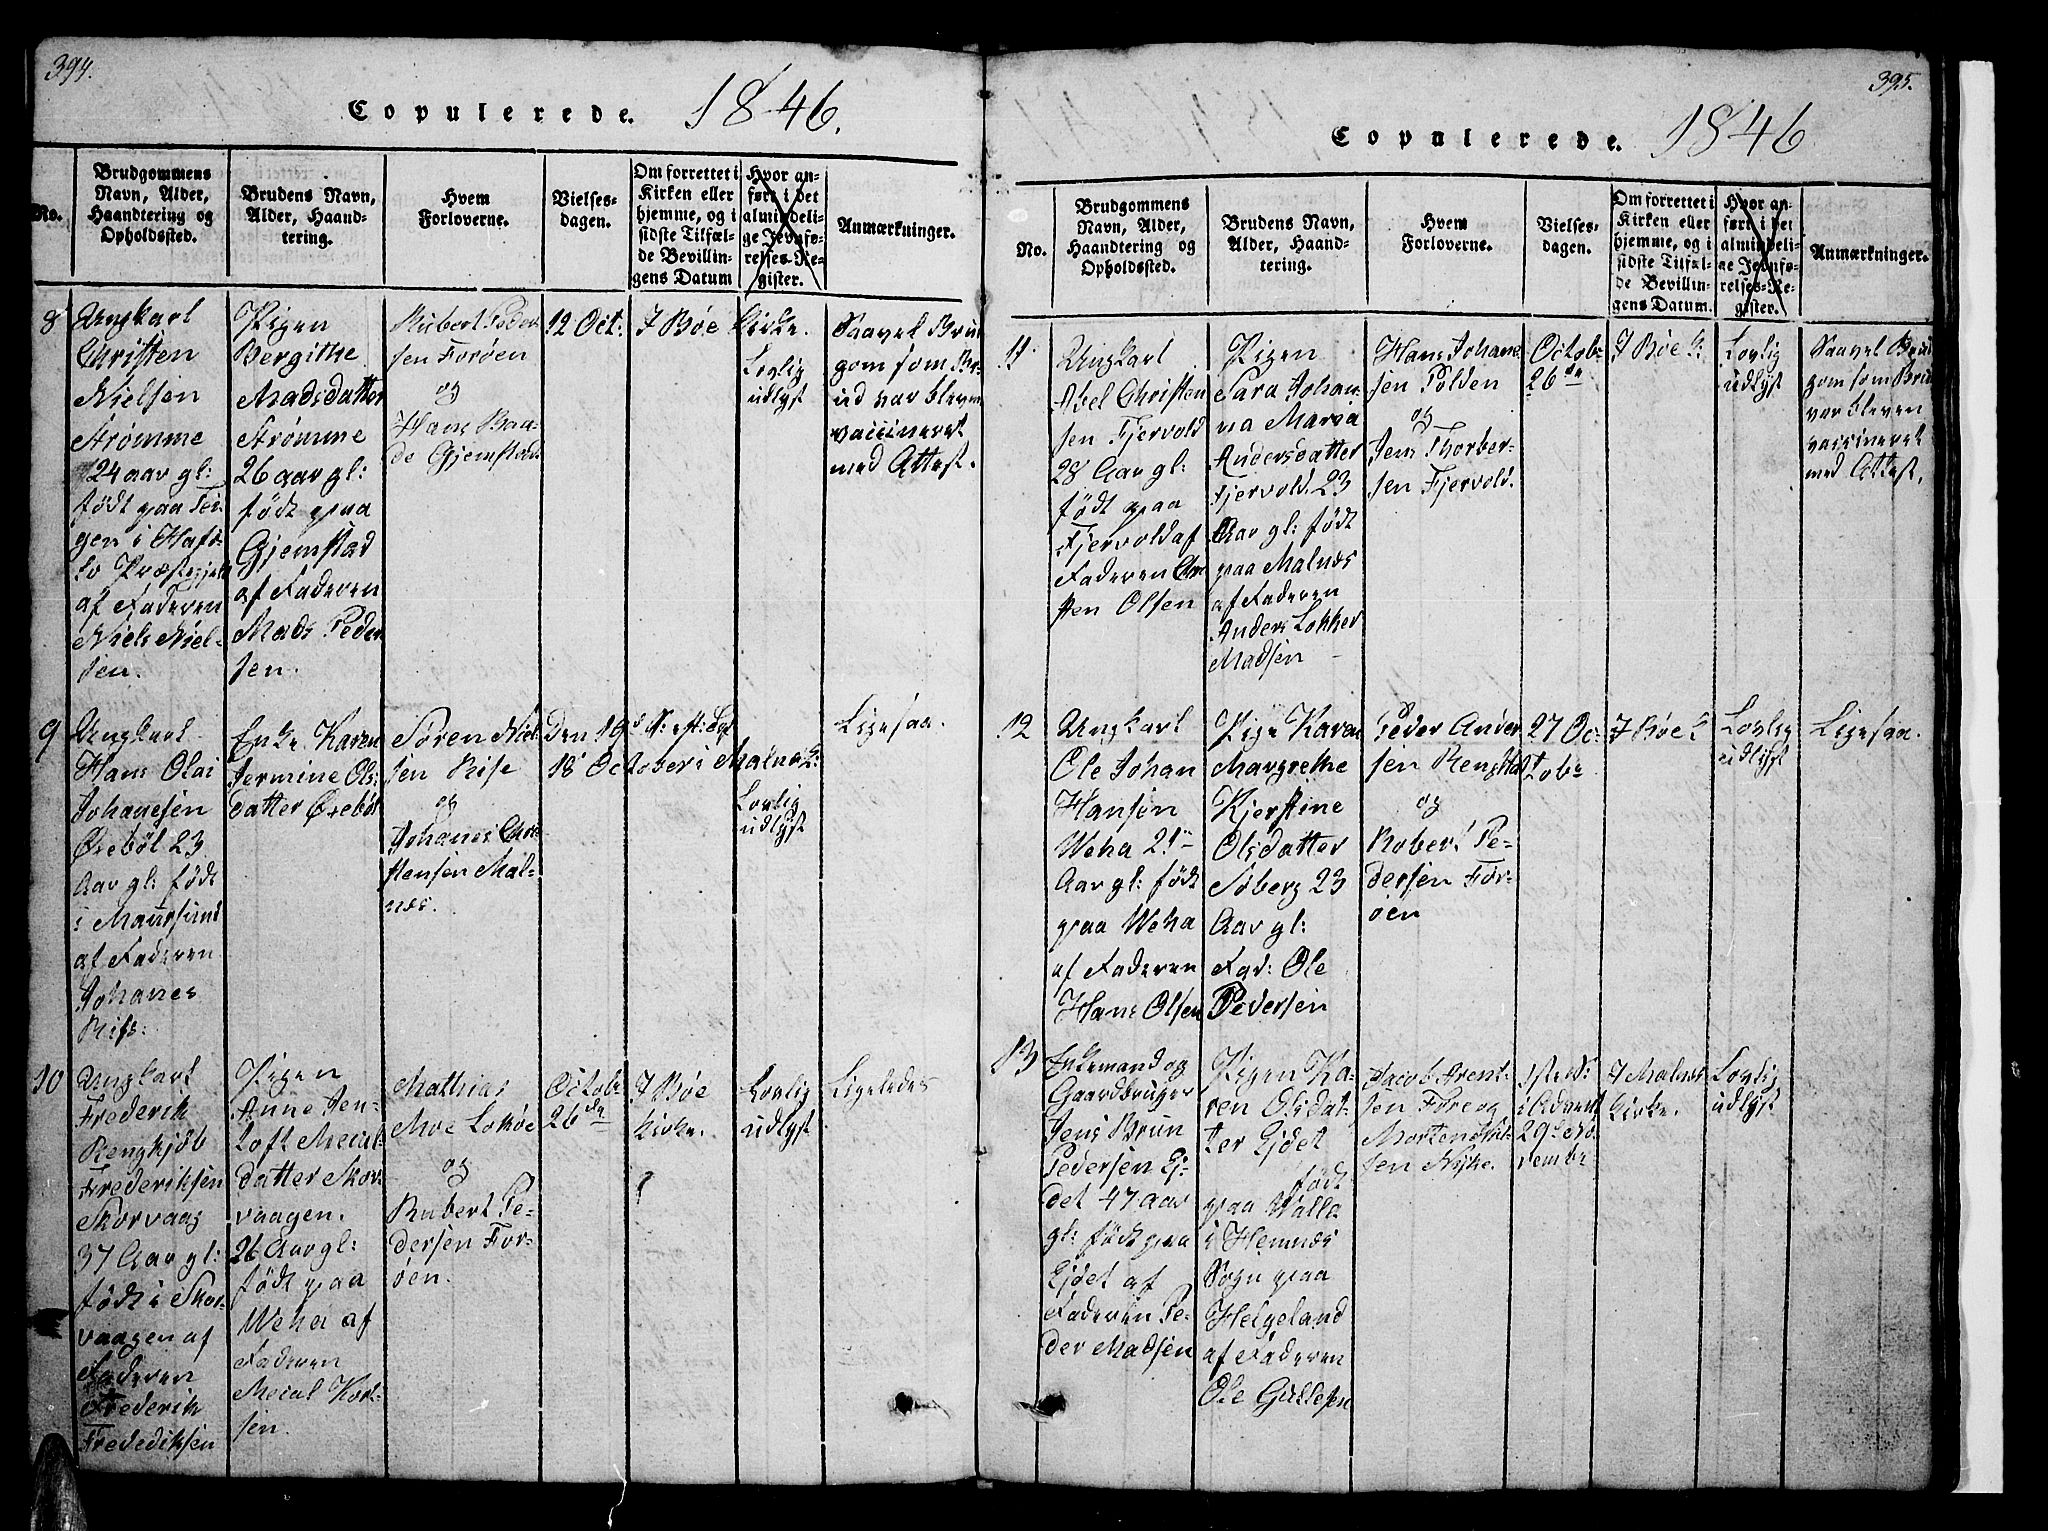 394.
Copulerede. 1846.
No.
Brudgommens Navn, Alder, Haandtering og Opholdssted.
Brudens Navn, Alder, Haandtering.
Hvem Forloverne.
Vielsesdagen.
Om forrettet i Kirken eller hjemme, og i sidste Tilfælde Bevillingens Datum
Hvor anført i det almindelige Jevnførelses-Register.
Anmærkninger.
8
Ungkarl
Christen
Nielsen
Strømme
24 aar gl:
født paa
gen i
Præstegjeld
af Faderen
Niels Niel-
sen.
Pigen
Bergithe
Madsdatter
Strømme
26 aar gl:
født paa
Gjemstad
af Faderen
Mads Peder
sen.
Rubert Peder
sen Forøen
og
Hans Baa-
de Gjemstad
12 Oct:
I Bøe Kirke.
Lovlig
udlyst
Saavel Brud
gom som Br-
ud var bleven
vaccineret
med Attest.
9
Ungkarl
Hans Olai
Johanesen
Ørebøl 23
Aar gl: født
i Maursund
af Faderen
Johanes
Enke Karen
Jermine Ols
datter Ørebøl
Søren Niel
sen Rise
og
Johanes Chri
stensen Mal-
næs.
Den 19 S: eft: Tref
18 October i Malnæs K:
Lovlig
udlyst
Ligesaa.
10
Ungkarl
Frederik
Rengkjøb
Frederiksen
Skorvaag
37 Aar gl:
født i Skor-
vaagen af
Faderen
Frederik
Frederiksen
Pigen
Anne Jen-
toft Meial
datter Skor
vaagen.
26 Aar gl:
født paa
Weha af
Faderen
Meial Karl-
sen.
Mathias
Moe Lokøe
og
Rubert Pe-
dersen For-
øen.
Octobr
26de
I Bøe
Kirke.
Lovlig
udlyst
Ligeledes
395.
Copulerede. 1846
No.
Brudgommens Navn, Alder, Haandtering og Opholdssted.
Brudens Navn, Alder, Haandtering.
Hvem Forloverne.
Vielsesdagen.
Om forrettet i Kirken eller hjemme, og i sidste Tilfælde Bevillingens Datum.
Hvor anført i det almindelige Jevnførelses-Register.
Anmærkninger.
11.
Ungkarl
Abel Christen
sen Fjervold
28 Aar gl:
født paa
Fjervold af
Faderen Chri
sten Olsen
Pigen
Sara Johan-
na Maria
Andersdatter
Fjervold. 23
Aar gl: født
paa Malnæs
af Faderen
Anders Lokker
Madsen
Hans Johane
sen Polden
og
Jens Thorber-
sen Fjervold.
Octobr
26de
I Bøe K:
Lovlig
udlyst
Saavel Brud
gom som Brud
var bleven
vaccineret
med Attest.
12
Ungkarl
Ole Johan
Hansen
Weha 21
Aar gl: født
paa Weha
af Faderen
Hans Olsen
Pige Karen
Margrethe
Kjerstine
Olsdatter
Søberg 23
Aar gl:
Fad: Ole
Pedersen
Peder Ander
sen Rengstad
og
Robert Pe-
dersen For-
øen
27 Oc-
tobr
I Bøe K
Lovlig
udlyst
Ligesaa.
13
Enkemand og
Gaardbruger
Jens Brun
Pedersen Ej-
det 47 aar
gl: født paa
Ejdet af
Faderen Pe-
der Madsen
Pigen Ka-
ren Olsdat-
ter Ejdet
født
paa Walla
i Hemnæs
Sogn paa
Helgeland
af Faderen
Ole Gullesen
Jacob Arent-
sen Føre og
Morten Nil-
sen Nyke.
1ste S:
i Advent
29de No-
vembr
I Malnæs
Kirke.
Lovlig
udlyst